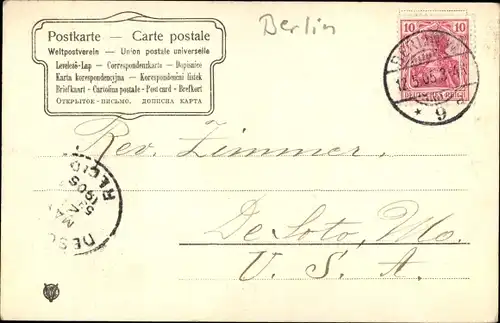 Postkarte — Carte postale
Weltpostverein — Union postale universelle
Levelező-Lap — Correspondenzkarte — Dopisnice
Karta korespondencyjna — Korespondenční lístek
Briefkaart - Cartolina postale - Post card - Brefkort
ОТКРЫТОЕ - ПИСЬМО. ДОПИСНА КАРТА
Berlin
10 10
DEUTSCHES REICH
BERLIN
12.5.05.
* 9
Rev. Zimmer.
De Soto, Mo.
U. S. A.
REC'D
1905
MAY
DESO